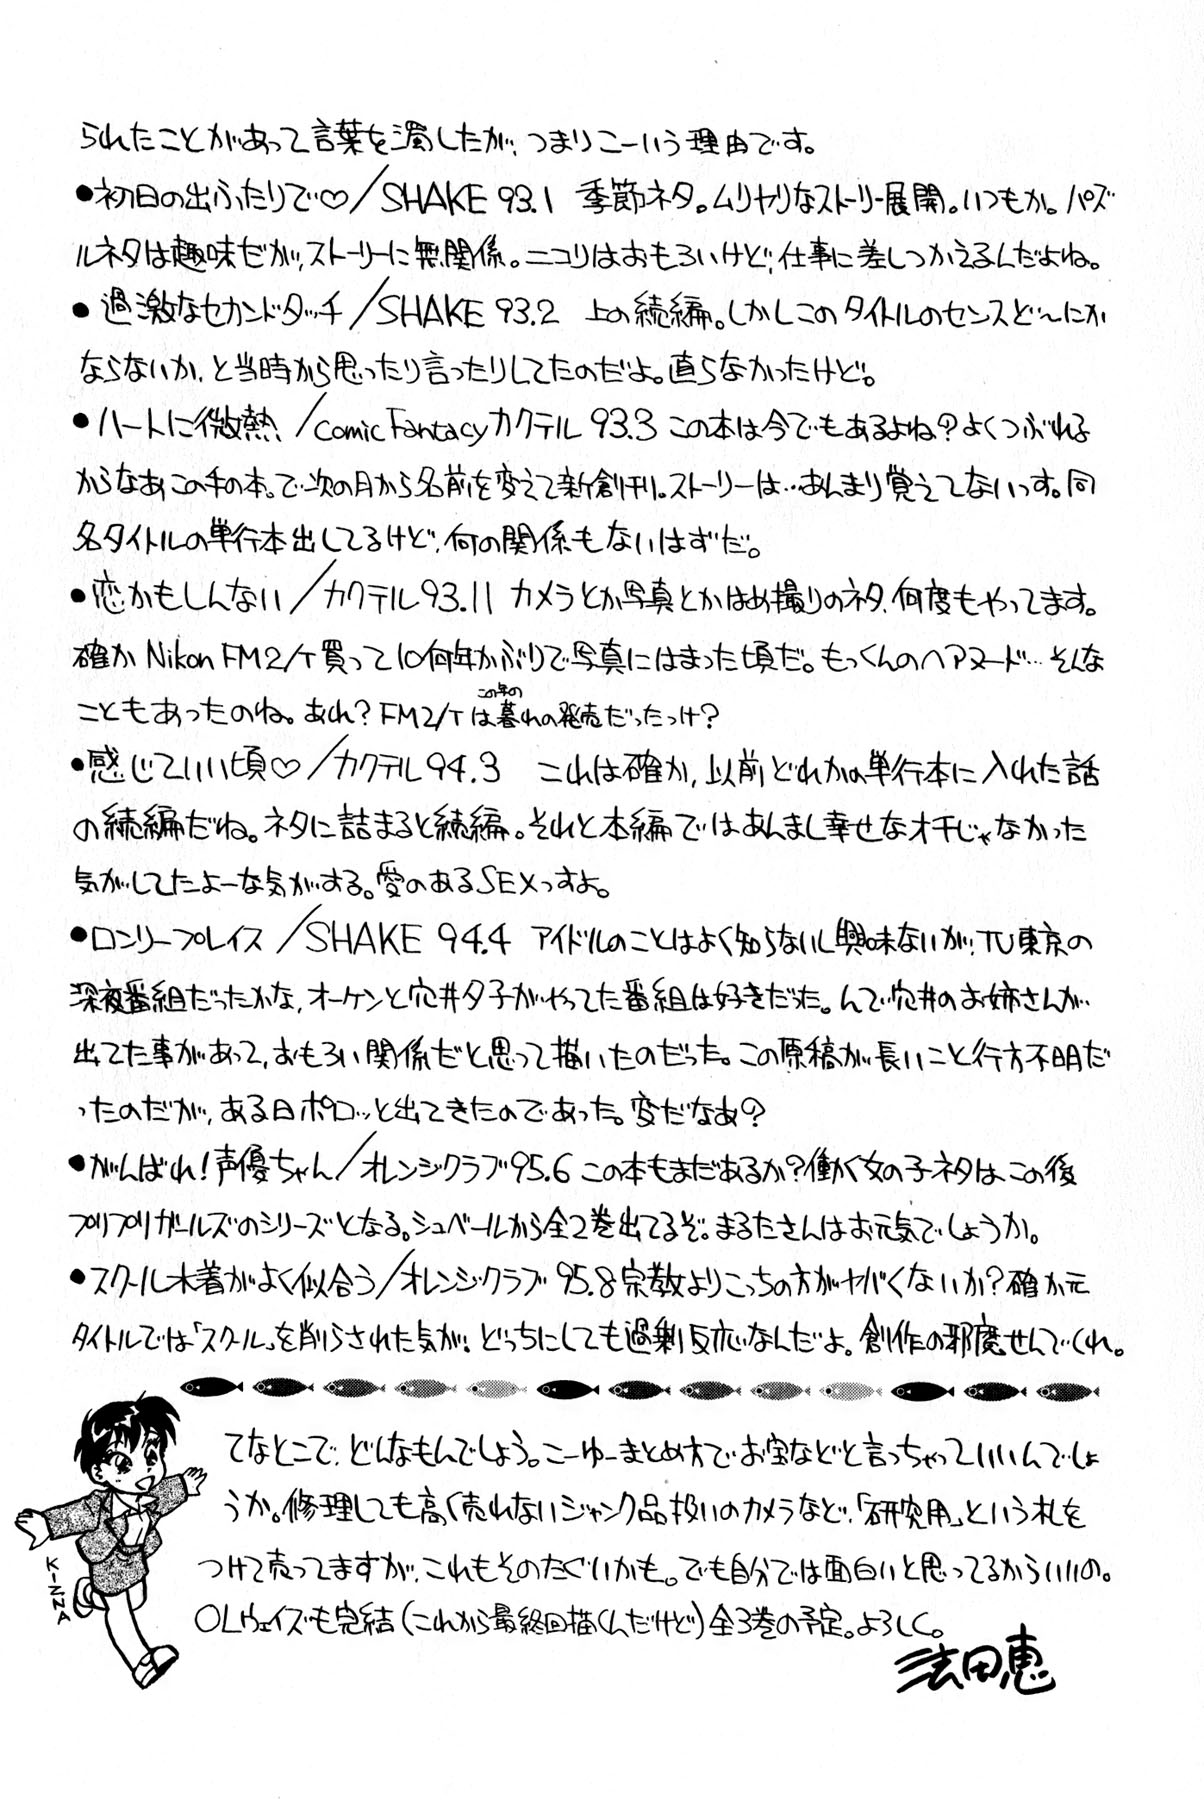 られたことがあって言葉を濁したが、つまりこーいう理由です。
●初日の出ふたりで♡/SHAKE 93.1 季節ネタ。ムリヤリなストーリー展開。いつもか。パズ
ルネタは趣味だが、ストーリーに無関係。ニコリはおもろいけど、仕事に差しつかえるんだよね。
●過激なセカンドタッチ/SHAKE 93.2 上の続編。しかしこのタイトルのセンスど〜にか
ならないか、と当時から思ったり言ったりしてたのだよ。直らなかったけど。
●ハートに微熱/comic Fantasyカクテル 93.3 この本は今でもあるよね？よくつぶれる
からなあこの手の本。で次の月から名前を変えて新創刊。ストーリーは…あんまり覚えてないっす。同
名タイトルの単行本出してるけど、何の関係もないはずだ。
●恋かもしんない/カクテル93.11 カメラとか写真とかはめ撮りのネタ、何度もやってます。
確かNikon FM2/T買って10何年かぶりで写真にはまった頃だ。もっくんのヘアヌード…そんな
この年の
こともあったのね。あれ？FM2/Tは暮れの発売だったっけ？
●感じていい頃♡/カクテル94.3 これは確か、以前どれかの単行本に入れた話
の続編だね。ネタに詰まると続編。それと本編ではあんまし幸せなオチじゃなかった
気がしてたよーな気がする。愛のあるSEXっすよ。
●ロンリープレイス/SHAKE 94.4 アイドルのことはよく知らないし興味ないが、TV東京の
深夜番組だったかな、オーケンと穴井夕子がやってた番組は好きだった。んで穴井のお姉さんが
出てた事があって、おもろい関係だと思って描いたのだった。この原稿が長いこと行方不明だ
ったのだが、ある日ポロッと出てきたのであった。変だなあ？
●がんばれ！声優ちゃん/オレンジクラブ95.6 この本もまだあるか？働く女の子ネタは、この後
プリプリガールズのシリーズとなる。シュベールから全2巻出てるぞ。まるたさんはお元気でしょうか。
●スクール水着がよく似合う/オレンジクラブ 95.8 宗教よりこっちの方がヤバくないか？確か元
タイトルでは「スクール」を削らされた気が！どっちにしても過剰反応なんだよ。創作の邪魔せんでくれ。
てなとこで、どんなもんでしょう。こーゆーまとめ方でお宝などと言っちゃっていいんでしょ
うか。修理しても高く売れないジャンク品扱いのカメラなど、「研究用」という札を
つけて売ってますが、これもそのたぐいかも。でも自分では面白いと思ってるからいいの。
OLウェイズも完結(これから最終回描くんだけど)全3巻の予定。よろしく。
法田恵
KIZNA